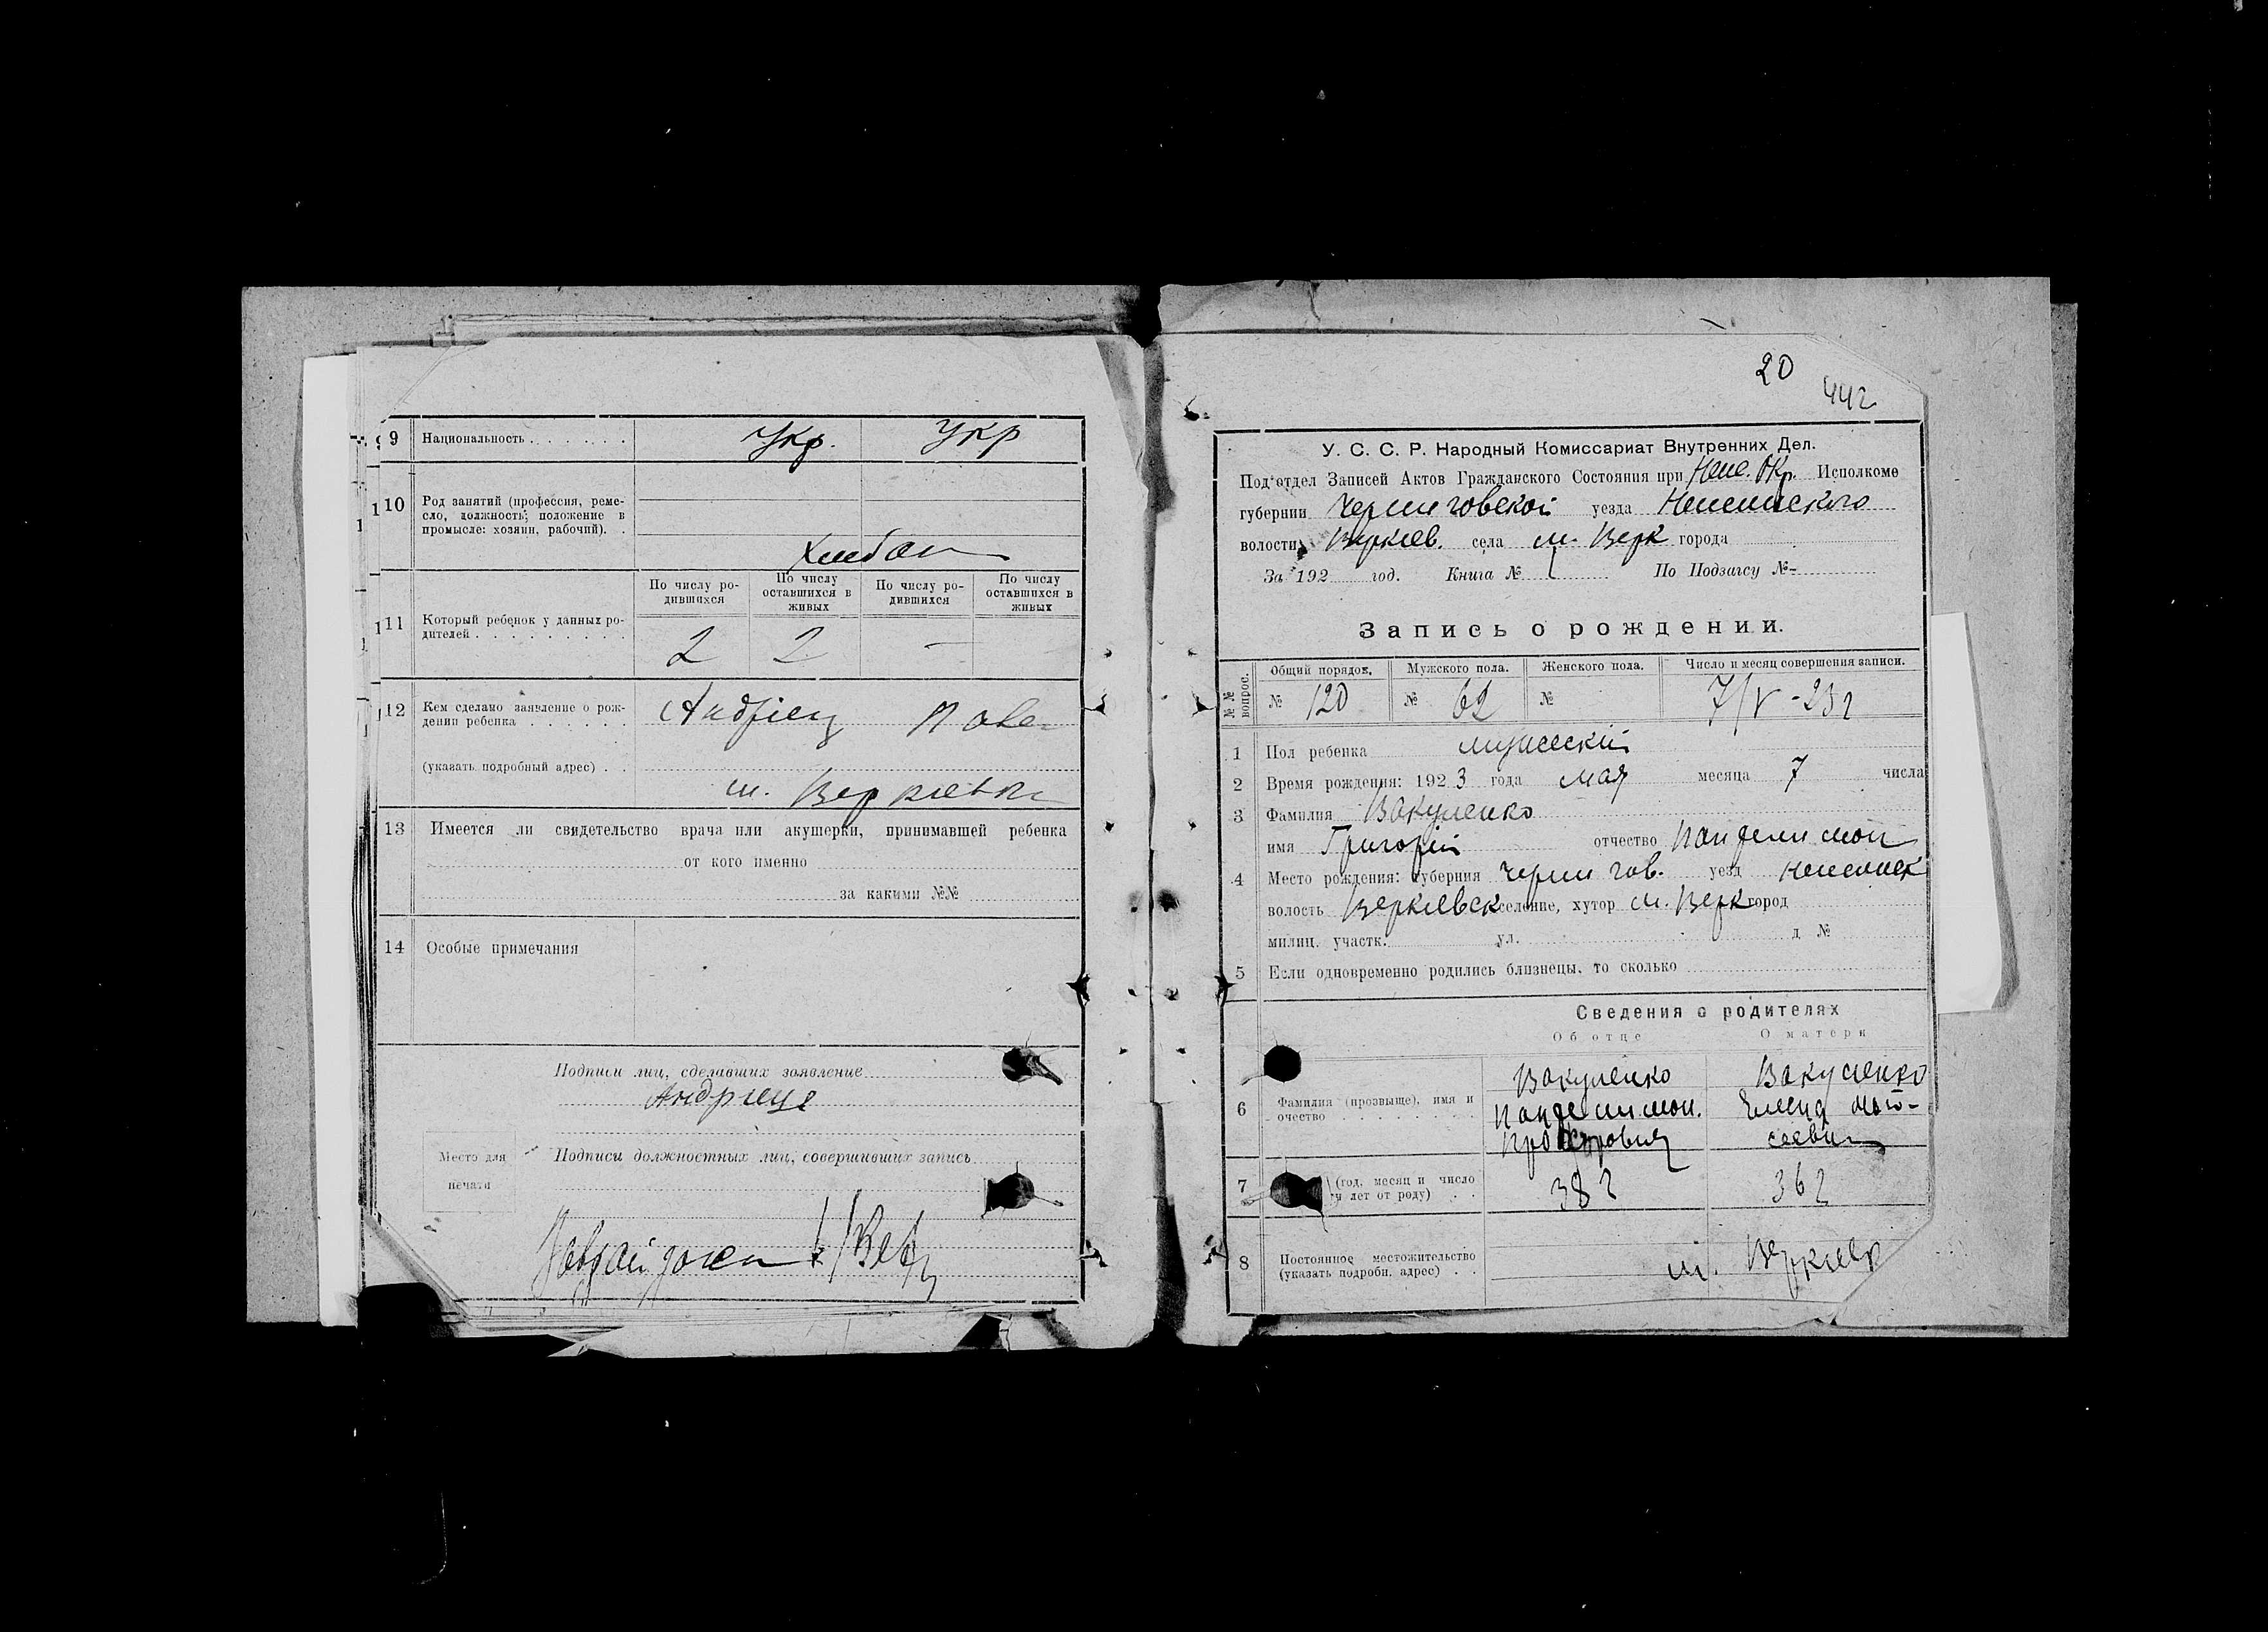 9 Национальность . . . . . . . Укр. Укр
10 Род занятий (профессия, реме-
сло, должность; положение в
промысле: хозяин, рабочий). .
По числу ро-
дившихся
По числу
оставшихся в
живых
По числу ро-
дившихся
По числу
оставшихся в
живых
11 Который ребенок у данных ро-
дителей . . . . . . . . . 2 2 —
12 Кем сделано заявление о рож-
дении ребенка . . . . . . Андріец
(указать подробный адрес) . .
м. Веркіевка
13 Имеется ли свидетельство врача или акушерки, принимавшей ребенка
от кого именно
за какими №№
14 Особые примечания
Подписи лиц, сделавших зоявление
Место для
печати
Подписи должностных лиц, совершивших запись
20
442
У. С. С. Р. Народный Комиссариат Внутренних Дел.
Под'отдел Записей Актов Гражданского Состояния при Неж. Окр. Исполкоме
губернии Черниговской уезда Неженского
волости Веркіев. села м. Верк города
За 192 год. Книга № По Подзагсу №
Запись о рождении.
№№ вопрос.
Общий порядок. Мужского пола. Женского пола. Число и месяц совершения записи.
№ 120 № 62 № 7/V - 23 г
1 Пол ребенка мужеский
2 Время рождения: 1923 года мая месяца 7 числа
3 Фамилия Вакуленко
имя Григорій отчество Пантелимон
4 Место рождения: губерния Черни гов. уезд Неженск
волость Веркіевск селение, хутор м. Верк город
милиц. участк. ул. д №
5 Если одновременно родились близнецы, то сколько
Сведения о родителях
Об отце О матери
6 Фамилия (прозвыще), имя и
очество . . . . . . . .
Вакуленко
Пантелимон.
Вакуленко
Елена Мои-
сеевн
7 (год, месяц и число
лет от роду) . . 38 г 36 г
8 Постоянное местожительство
(указать подробн. адрес) . . м. Веркиев